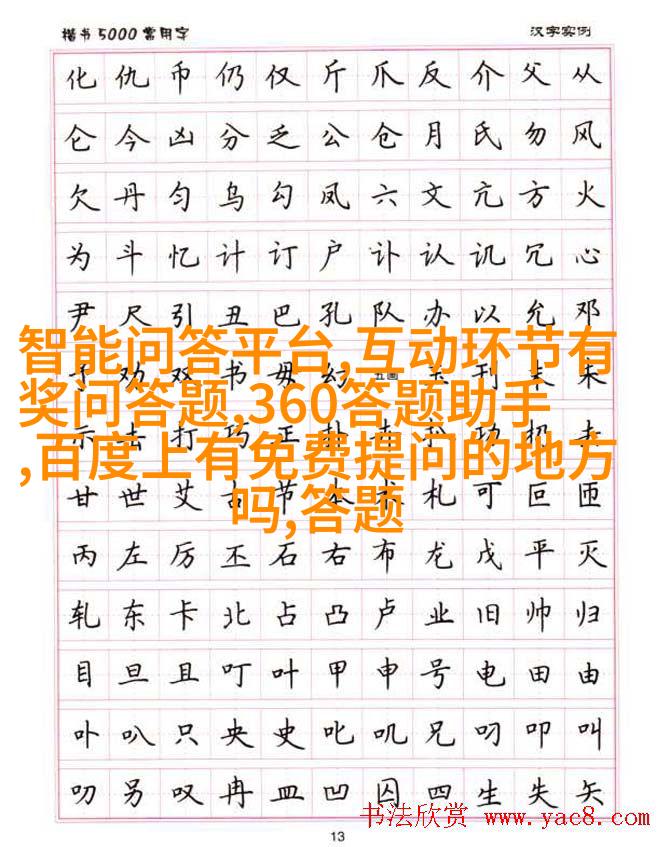 楷书5000常用字
汉字实例
化仇币仍仅斤爪反介父从
仑今凶分乏公仓月氏勿风
欠丹匀乌勾凤六文亢方火
为斗忆计订户讣认讥冗心
尹尺引丑巴孔队办以允邓
智能问答平台,互动环节有
奖问答题,360答题助手
,百度上有免费提问的地方
吗,答题
予劝双书毋幻
示击打巧正扑
甘世艾古节本术札可叵匝
丙左厉丕石右布龙戊平灭
轧东卡北占凸卢业旧帅归
目旦且叮叶甲申号电田由
卟叭只央史叱叽兄叼叩叫
叨另叹冉皿凹囚四生失矢
13
书法欣赏 www.yac8.com